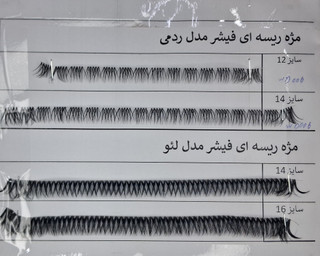 مژه ریسه ای فیشر مدل ردمی
سایز 12
سایز 14
مژه ریسه ای فیشر مدل لئو
سایز 14
سایز 16